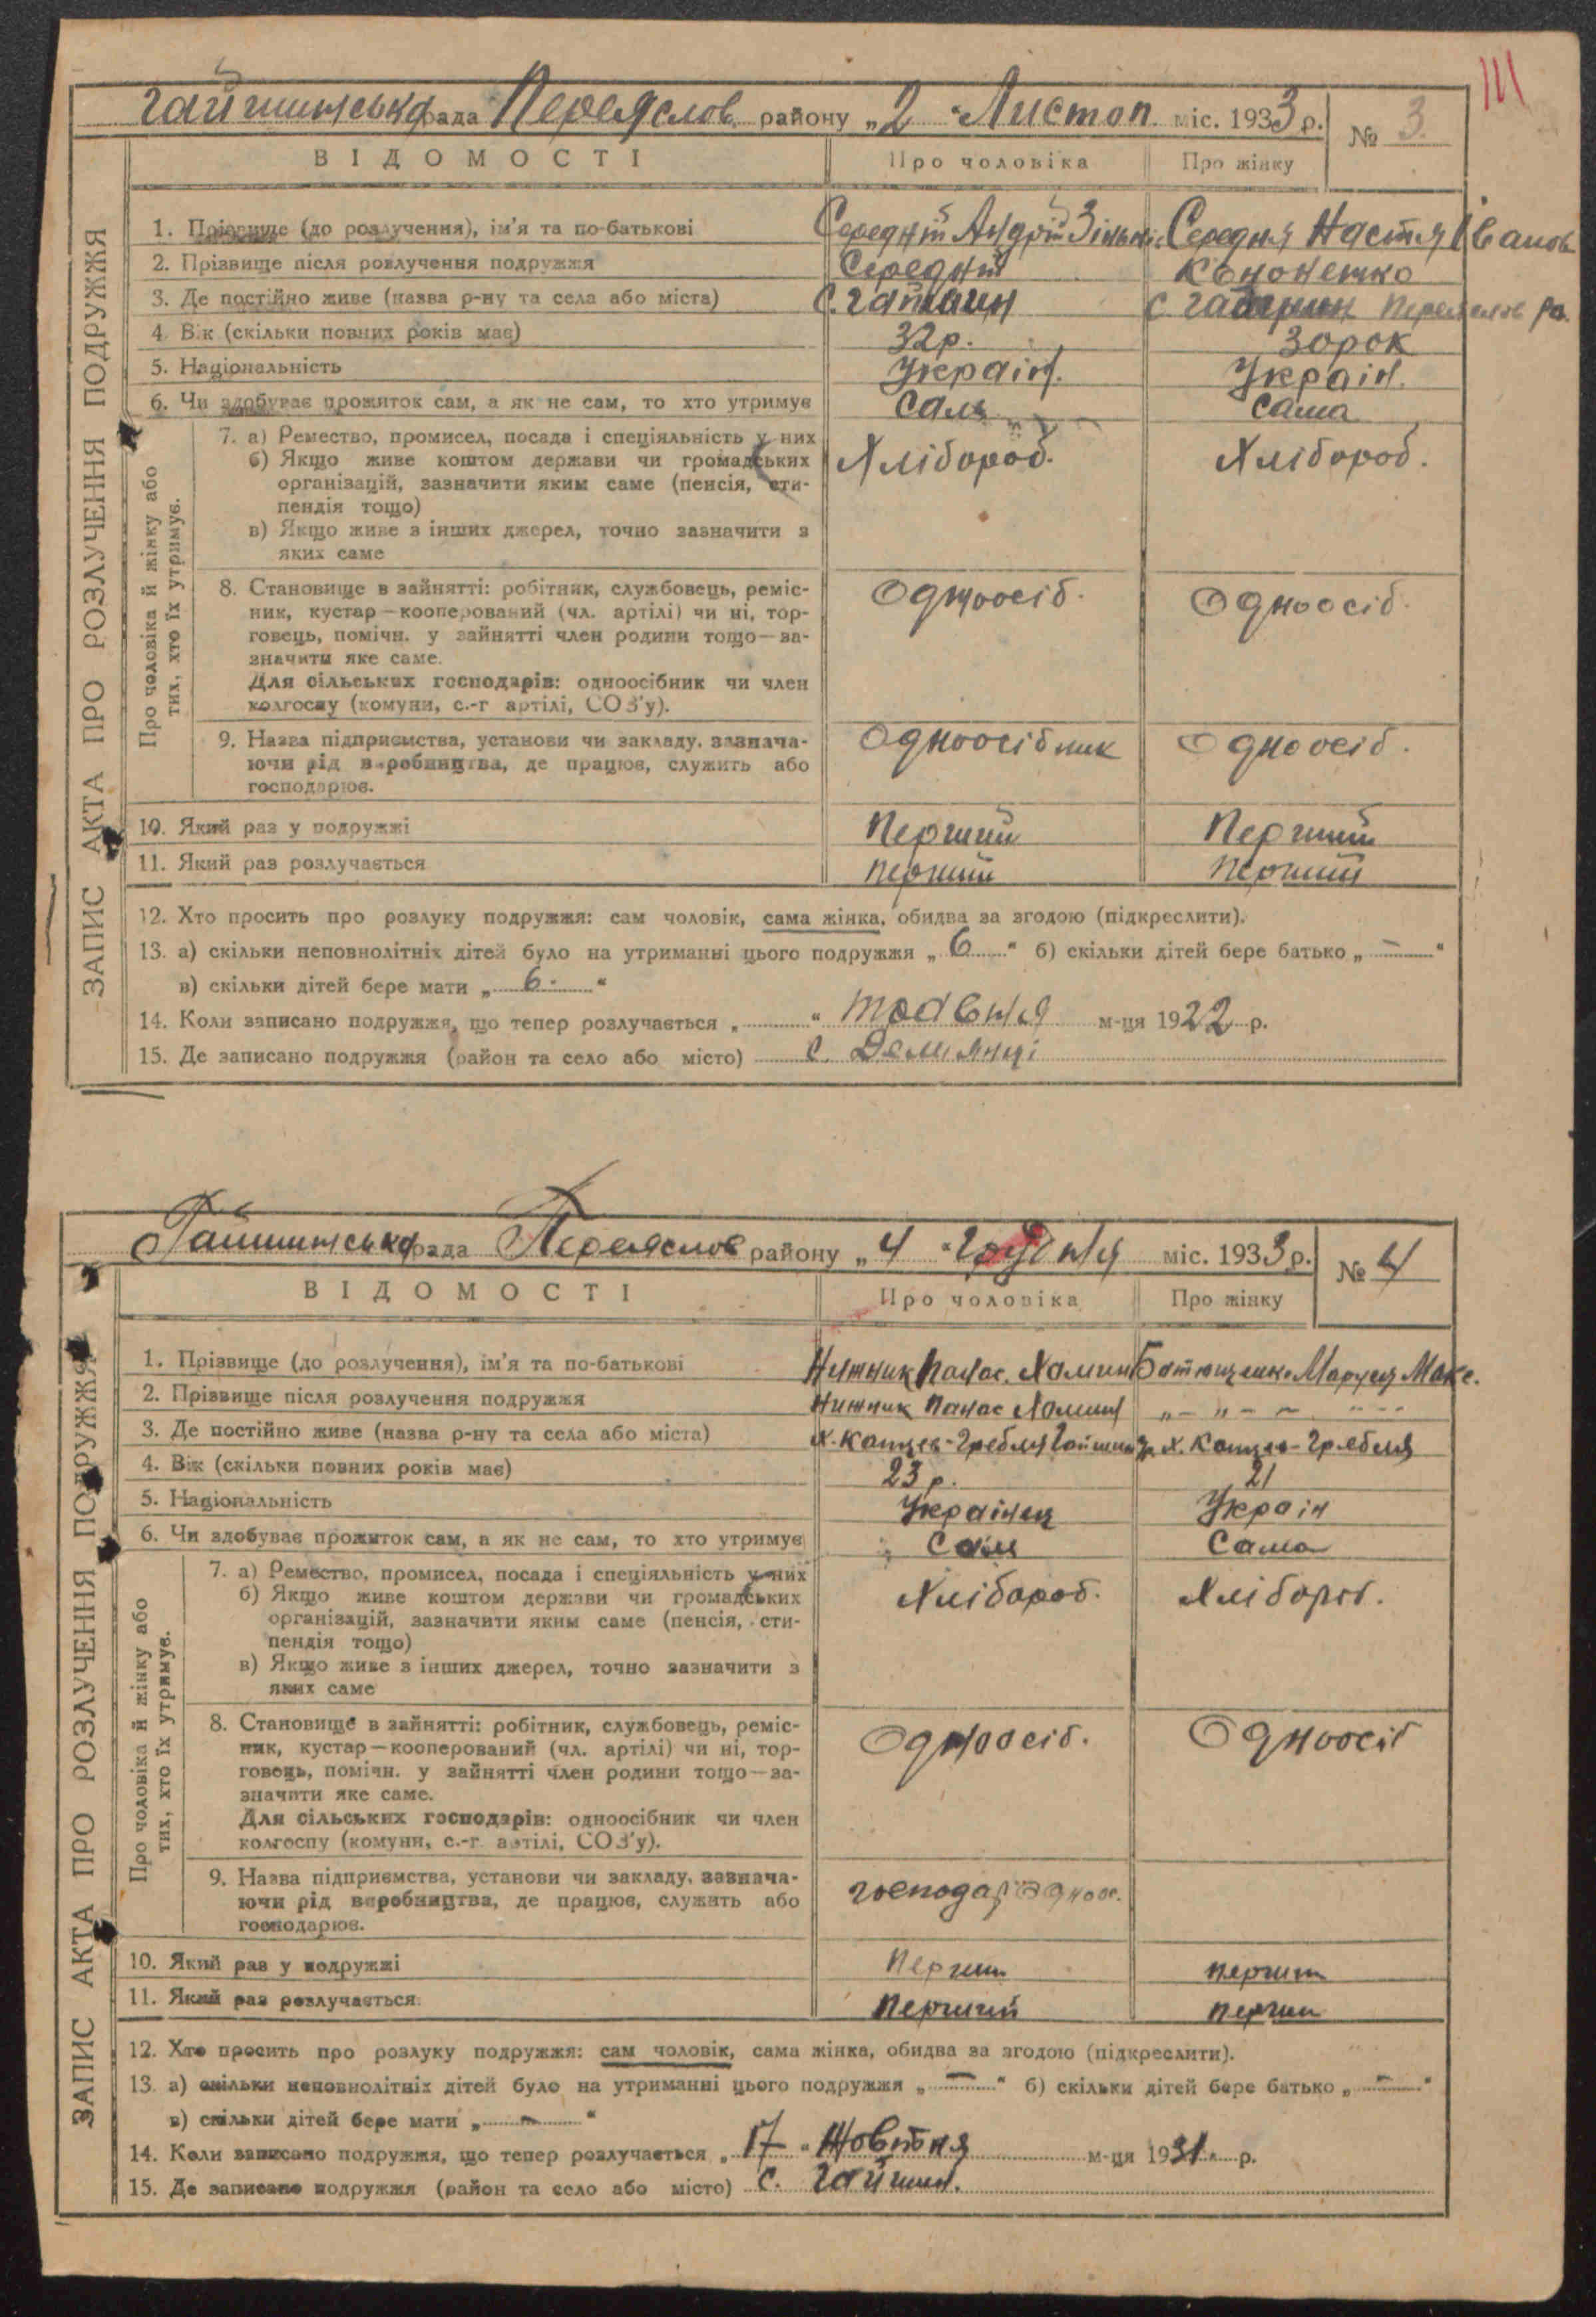 III
Гайшинська рада Переяслов. району „2 “ Листоп. міс. 1933 р. № 3.
ВІДОМОСТІ Про чоловіка Про жінку
1. Прізвище (до розлучення), ім'я та по-батькові Середній Андрій Зіньк. Середня Настя Іванов
2. Прізвище після розлучення подружжя Середній Кононенко
3. Де постійно живе (назва р-ну та села або міста) с. Гайшин с. Гайшин Переяслов ра.
4. Вік (скільки повних років має) 32 р. 30 рок
5. Національність Україн. Україн.
6. Чи здобуває прожиток сам, а як не сам, то хто утримує Сам Сама
7. а) Ремество, промисел, посада і спеціяльність у них Хлібороб. Хлібороб.
б) Якщо живе коштом держави чи громадських
організацій, зазначити яким саме (пенсія, сти-
пендія тощо)
в) Якщо живе з інших джерел, точно зазначити з
яких саме
8. Становище в зайнятті: робітник, службовець, реміс- Одноосіб. Одноосіб.
ник, кустар—кооперований (чл. артілі) чи ні, тор-
говець, помічн. у зайнятті член родини тощо—за-
значити яке саме.
Для сільських господарів: одноосібник чи член
колгоспу (комуни, с.-г артілі, СОЗ'у).
9. Назва підприємства, установи чи закладу, зазнача- Одноосібник Одноосіб.
ючи рід виробництва, де працює, служить або
господарює.
10. Який раз у подружжі Перший Перший
11. Який раз розлучається Перший Перший
12. Хто просить про розлуку подружжя: сам чоловік, сама жінка, обидва за згодою (підкреслити).
13. а) скільки неповнолітніх дітей було на утриманні цього подружжя „ 6 “ б) скільки дітей бере батько „ — “
в) скільки дітей бере мати „ 6. “
14. Коли записано подружжя, що тепер розлучається „ “ Травня м-ця 1922 р.
15. Де записано подружжя (район та село або місто) с. Демянці
Про чоловіка й жінку або
тих, хто їх утримує.
ЗАПИС АКТА ПРО РОЗЛУЧЕННЯ ПОДРУЖЖЯ
Гайшинська рада Переяслов району „4 “ Грудня міс. 1933 р. № 4
ВІДОМОСТІ Про чоловіка Про жінку
1. Прізвище (до розлучення), ім'я та по-батькові Нижник Панас. Хомин Батющенко Маруся Макс.
2. Прізвище після розлучення подружжя Нижник Панас Хомин „ – „ – – „ – –
3. Де постійно живе (назва р-ну та села або міста) х. Концев-Гребля Гайшин х. Концев-Гребля
4. Вік (скільки повних років має) 23 р. 21
5. Національність Українец Україн
6. Чи здобуває прожиток сам, а як не сам, то хто утримує Сам Сама
7. а) Ремество, промисел, посада і спеціяльність у них Хлібороб. Хлібороб.
б) Якщо живе коштом держави чи громадських
організацій, зазначити яким саме (пенсія, сти-
пендія тощо)
в) Якщо живе з інших джерел, точно зазначити з
яких саме
8. Становище в зайнятті: робітник, службовець, реміс- Одноосіб. Одноосіб
ник, кустар—кооперований (чл. артілі) чи ні, тор-
говець, помічн. у зайнятті член родини тощо—за-
значити яке саме.
Для сільських господарів: одноосібник чи член
колгоспу (комуни, с.-г. артілі, СОЗ'у).
9. Назва підприємства, установи чи закладу, зазнача- господар одноос.
ючи рід виробництва, де працює, служить або
господарює.
10. Який раз у подружжі Перший перший
11. Який раз розлучається Перший перший
12. Хто просить про розлуку подружжя: сам чоловік, сама жінка, обидва за згодою (підкреслити).
13. а) скільки неповнолітніх дітей було на утриманні цього подружжя „ — “ б) скільки дітей бере батько „ — “
в) скільки дітей бере мати „ — “
14. Коли записано подружжя, що тепер розлучається „ 17 “ Жовтня м-ця 1931. р.
15. Де записано подружжя (район та село або місто) с. Гайшин.
Про чоловіка й жінку або
тих, хто їх утримує.
ЗАПИС АКТА ПРО РОЗЛУЧЕННЯ ПОДРУЖЖЯ